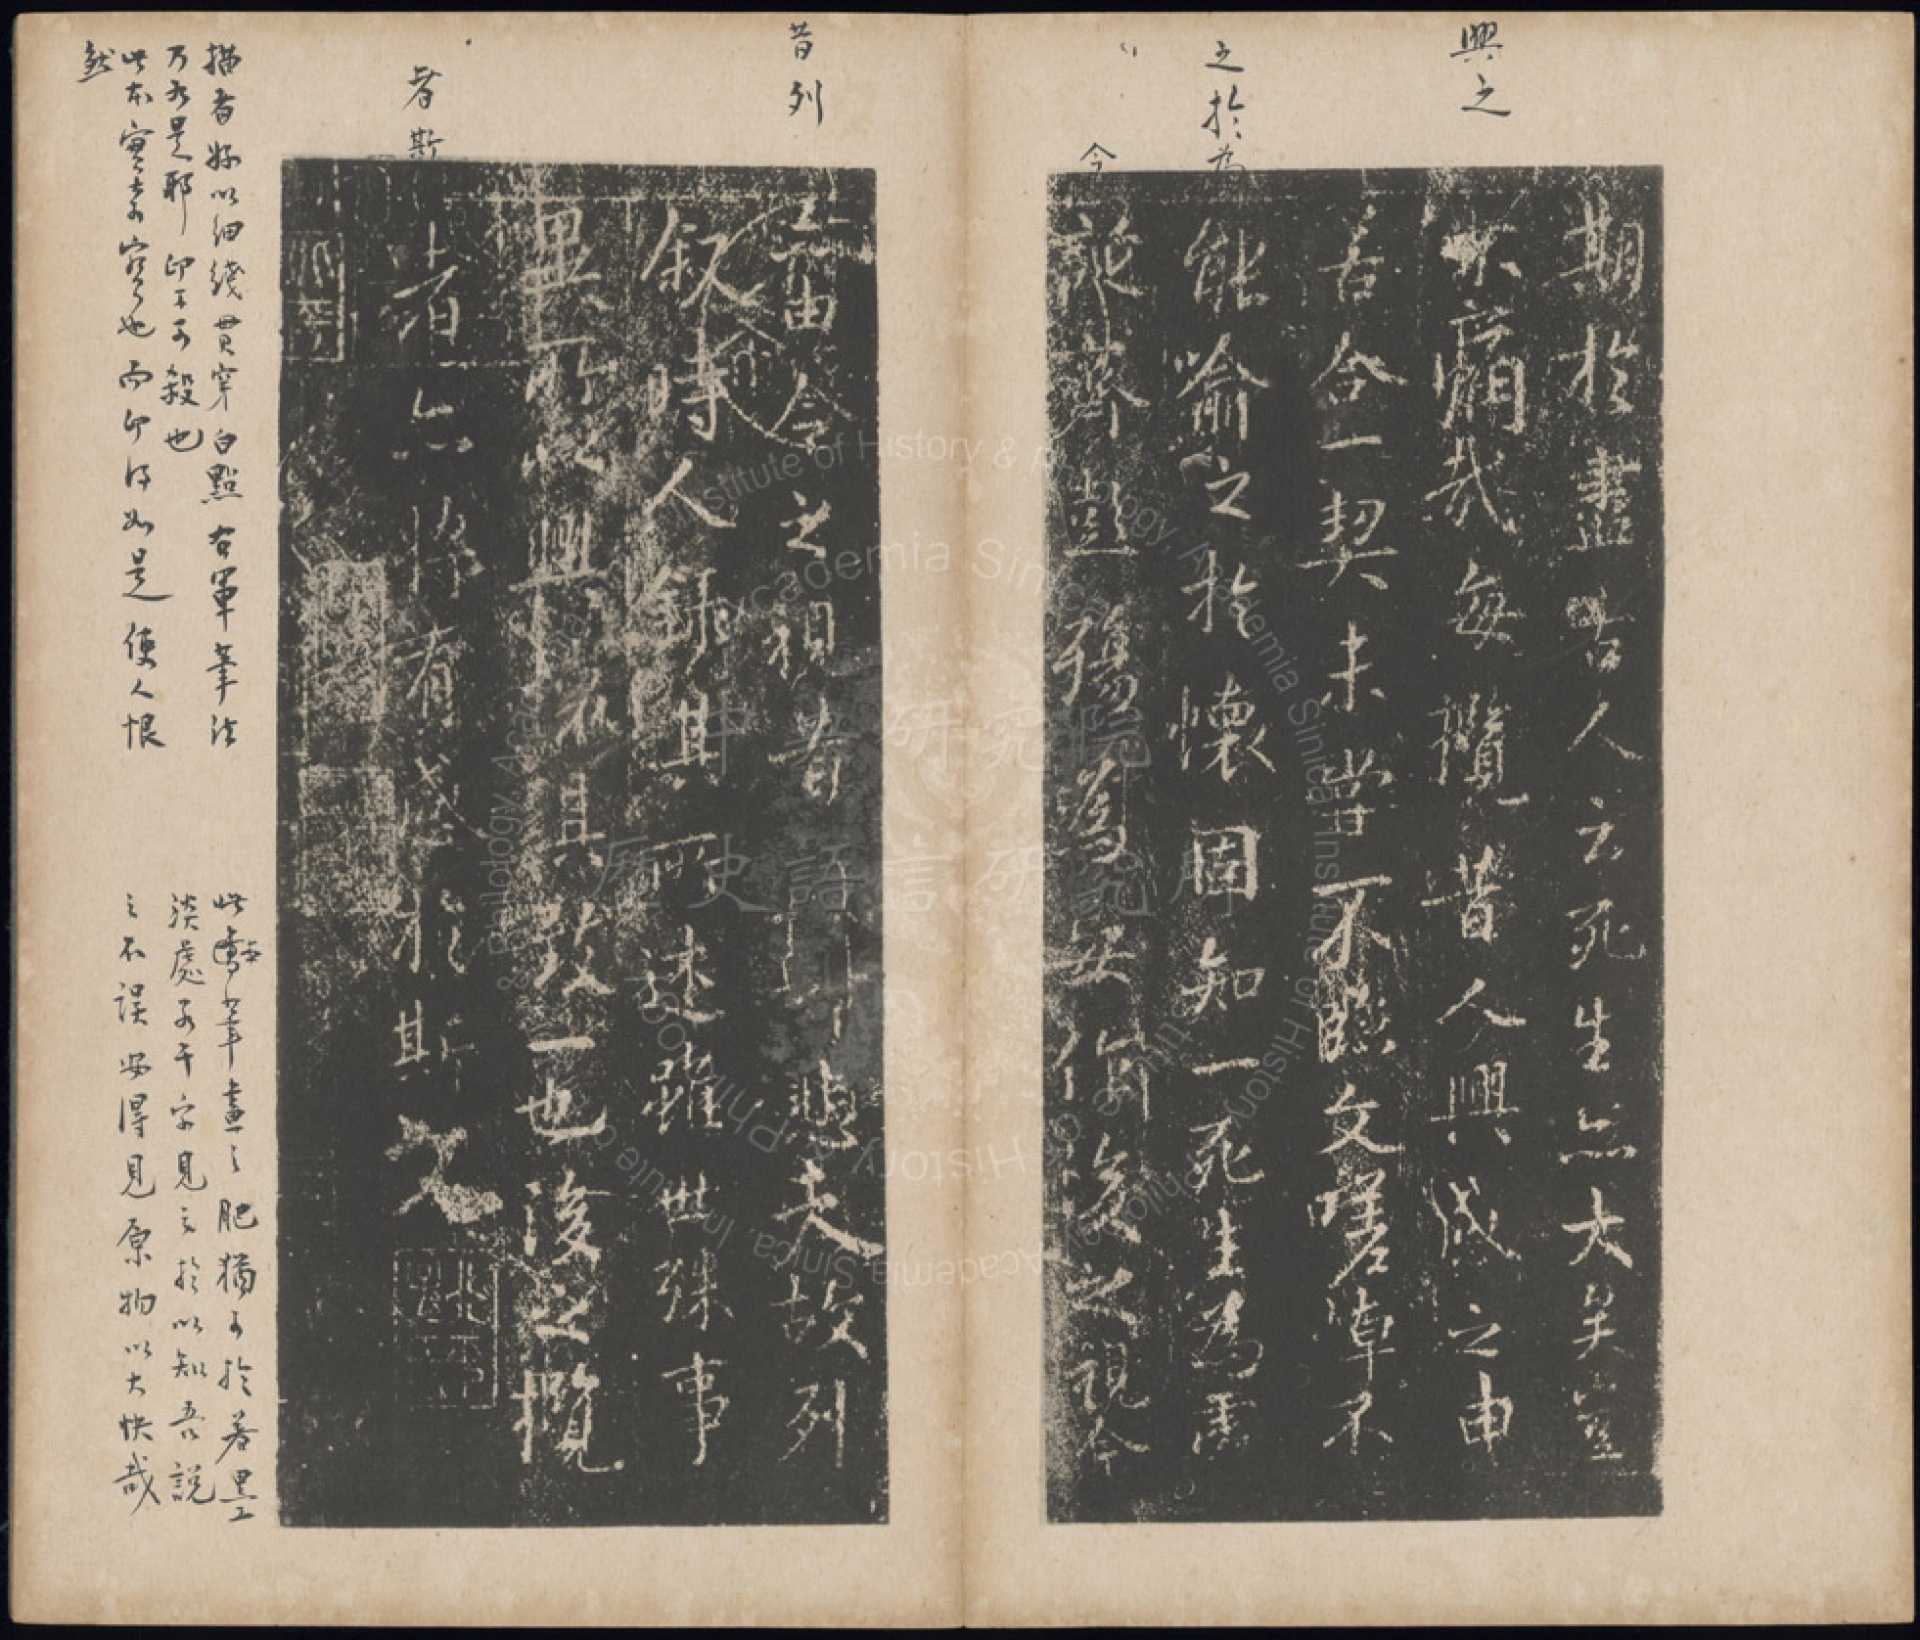 興之
之於為
今
期於盡古人云死生亦大矣豈
不痛哉每攬昔人興感之由
若合一契未嘗不臨文嗟悼不
能喻之於懷固知一死生為虛
誕齊彭殤為妄作後之視今
昔列
者斯
亦由今之視昔 悲夫故列
叙時人錄其所述雖世殊事
異所以興懷其致一也後之攬
者亦將有感於斯文
描者好以細綫貫穿白點右軍筆法
乃如是耶 印工可殺也
此本實未窮也而印得如是使人恨
然
此動筆畫之肥猶可於着墨工
淡處若干字見之於以知吾說
之不誤安得見原物以大快哉
中央研究院
歷史語言研究所
Institute of History & Philology, Academia Sinica